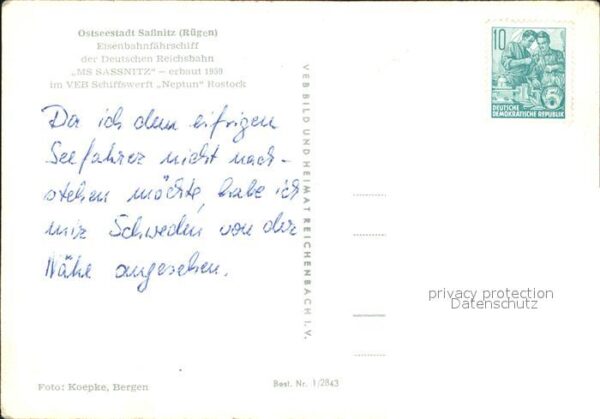 Ostseestadt Saßnitz (Rügen)
Eisenbahnfährschiff
der Deutschen Reichsbahn
„MS SASSNITZ" – erbaut 1959
im VEB Schiffswerft „Neptun" Rostock
Da ich dem eifrigen
Seefahrer nicht nach-
stehen möchte, habe ich
mir Schweden von der
Nähe angesehen.
VEB BILD UND HEIMAT REICHENBACH I. V.
10
5
DEUTSCHE
DEMOKRATISCHE REPUBLIK
privacy protection
Datenschutz
Foto: Koepke, Bergen
Best. Nr. 1/2843